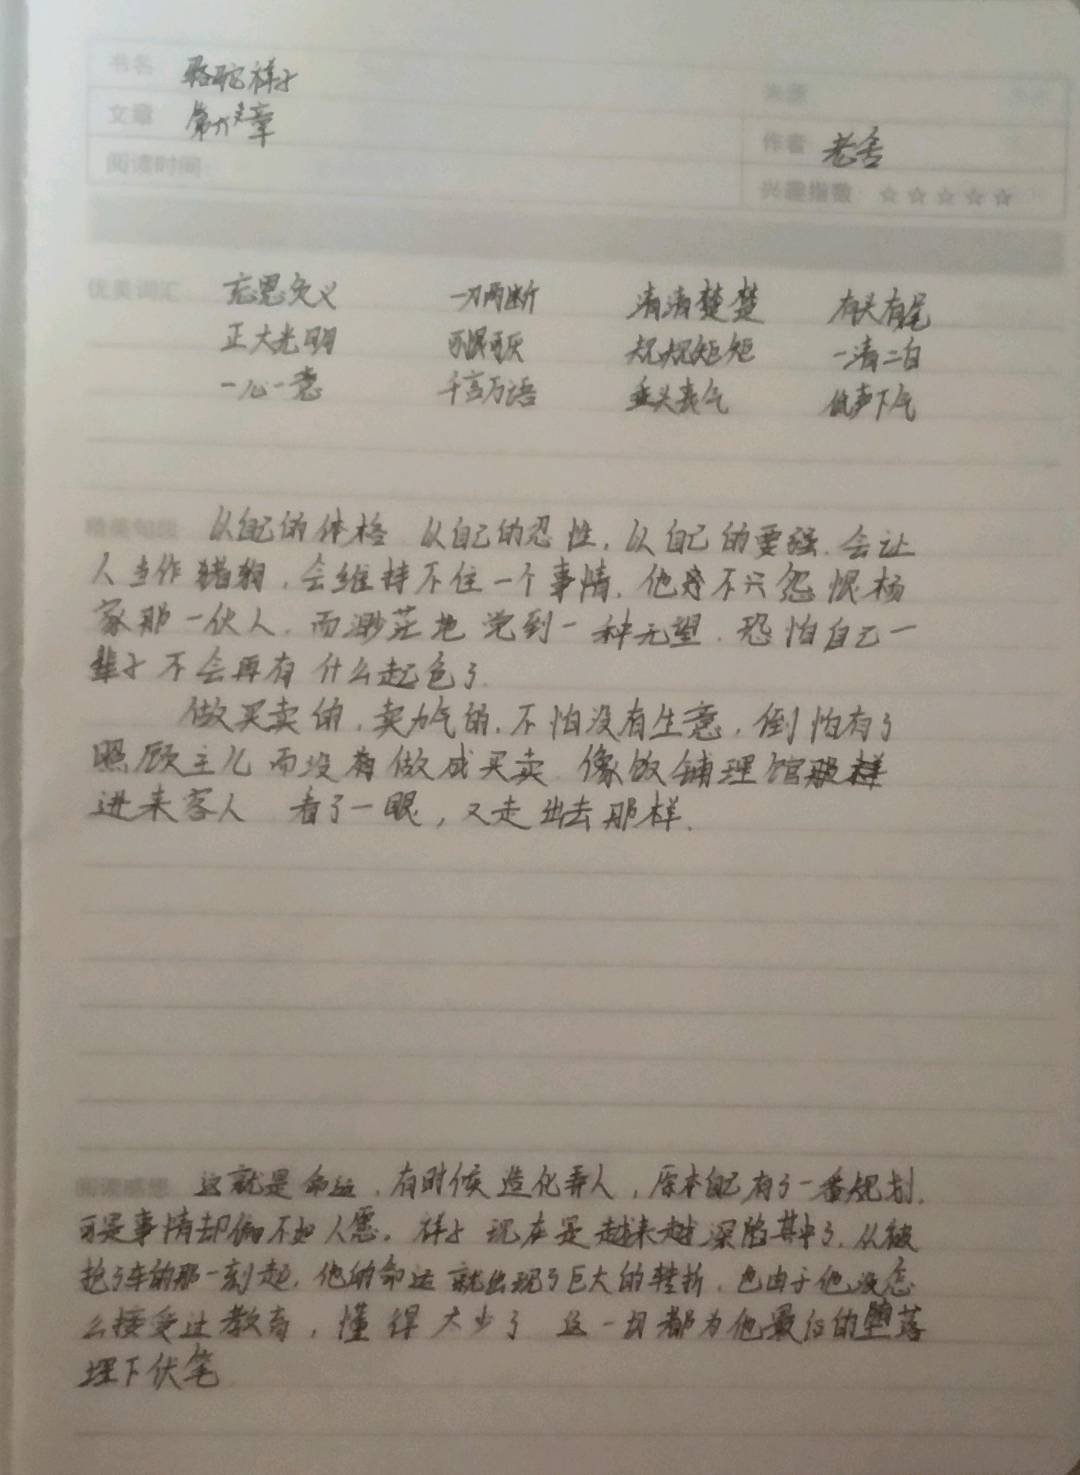 书名 骆驼祥子
来源
文章 第六章
作者 老舍
阅读时间
兴趣指数 ☆☆☆☆☆
优美词汇 忘恩负义 一刀两断 清清楚楚 有头有尾
正大光明 可恨可厌 规规矩矩 一清二白
一心一意 千言万语 垂头丧气 低声下气
精美句段 以自己的体格 以自己的忍性,以自己的要强.会让
人当作猪狗,会维持不住一个事情,他不只怨恨杨
家那一伙人.而渺茫地觉到一种无望.恐怕自己一
辈子不会再有什么起色了.
做买卖的,卖力气的,不怕没有生意,倒怕有了
照顾主儿而没有做成买卖 像饭铺理馆那样
进来客人 看了一眼,又走出去那样.
阅读感想 这就是命运,有时候造化弄人,原本自己有了一番规划,
可是事情却偏不如人愿。祥子现在是越来越深陷其中了,从被
抢了车的那一刻起,他的命运就出现了巨大的挫折,也由于他没怎
么接受过教育,懂得太少了 这一切都为他最后的堕落
埋下伏笔